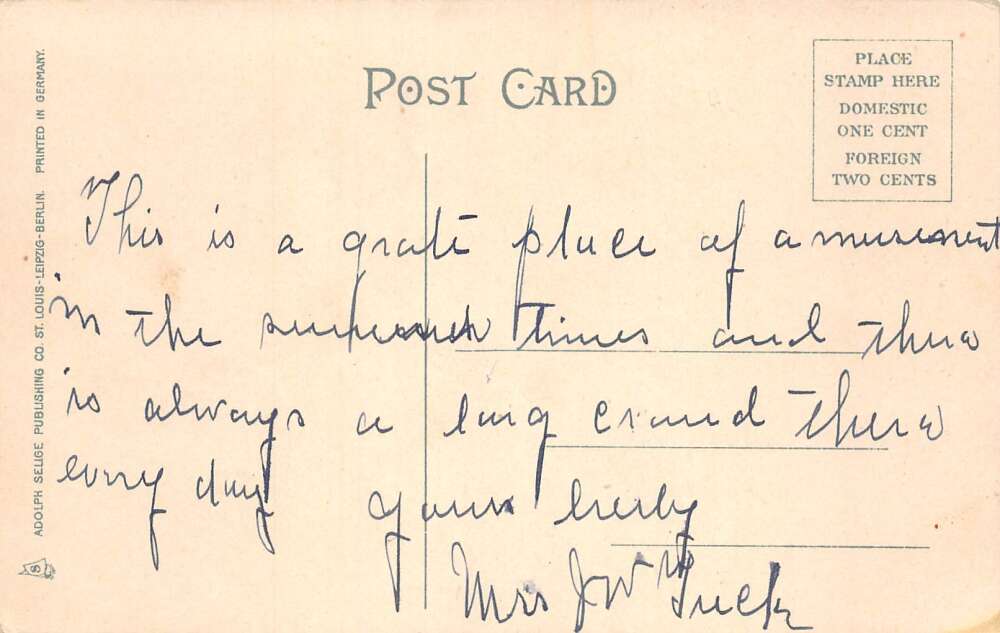 POST CARD
PLACE
STAMP HERE
DOMESTIC
ONE CENT
FOREIGN
TWO CENTS
ADOLPH SELIGE PUBLISHING CO. ST. LOUIS-LEIPZIG-BERLIN. PRINTED IN GERMANY.
S
This is a grate place of amusement
in the times and there
is always a larg croud there
every day yours truly
Mrs J W Tuck